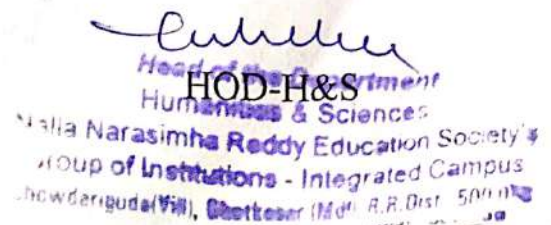 Head of the Department
HOD-H&S
Humanities & Sciences
Nalla Narasimha Reddy Education Society's
Group of Institutions - Integrated Campus
Chowdariguda(Vill), Ghatkesar (Mdl) R.R.Dist